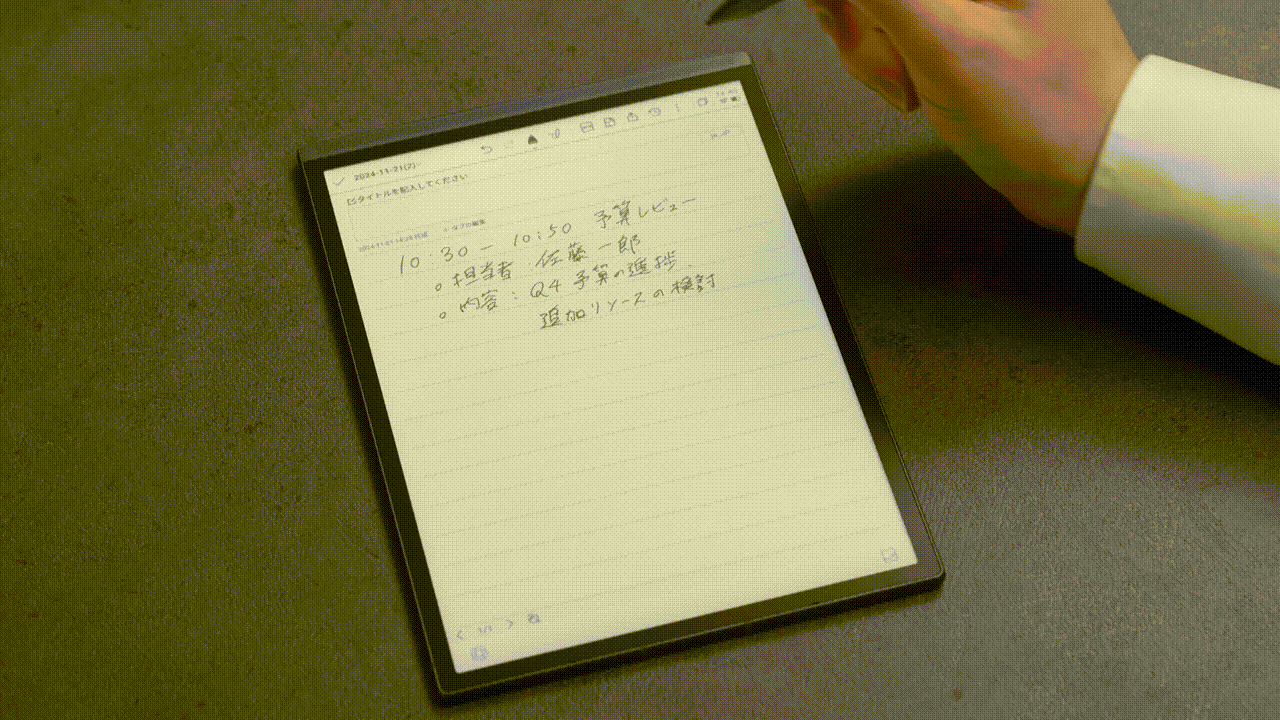 2024-11-21(2)
タイトルを記入してください
タブの編集
10:30 – 10:50 予算レビュー
○担当者:佐藤一郎
○内容:Q4予算の進捗
追加リソースの検討
1/1